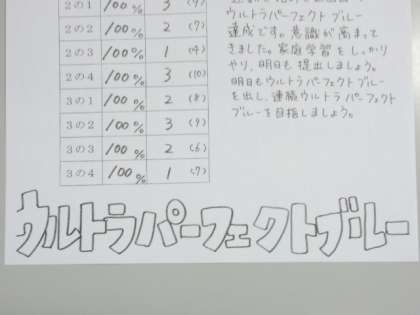 2の1 100% 3 (7)
ウルトラパーフェクトブルー
達成です。意識が高まって
きました。家庭学習をしっかり
やり、明日も提出しましょう。
明日もウルトラパーフェクトブルー
を出し、連続ウルトラパーフェクト
ブルーを目指しましょう。
2の2 100% 2 (7)
2の3 100% 1 (4)
2の4 100% 3 (10)
3の1 100% 2 (8)
3の2 100% 3 (9)
3の3 100% 2 (6)
3の4 100% 1 (7)
ウルトラパーフェクトブルー